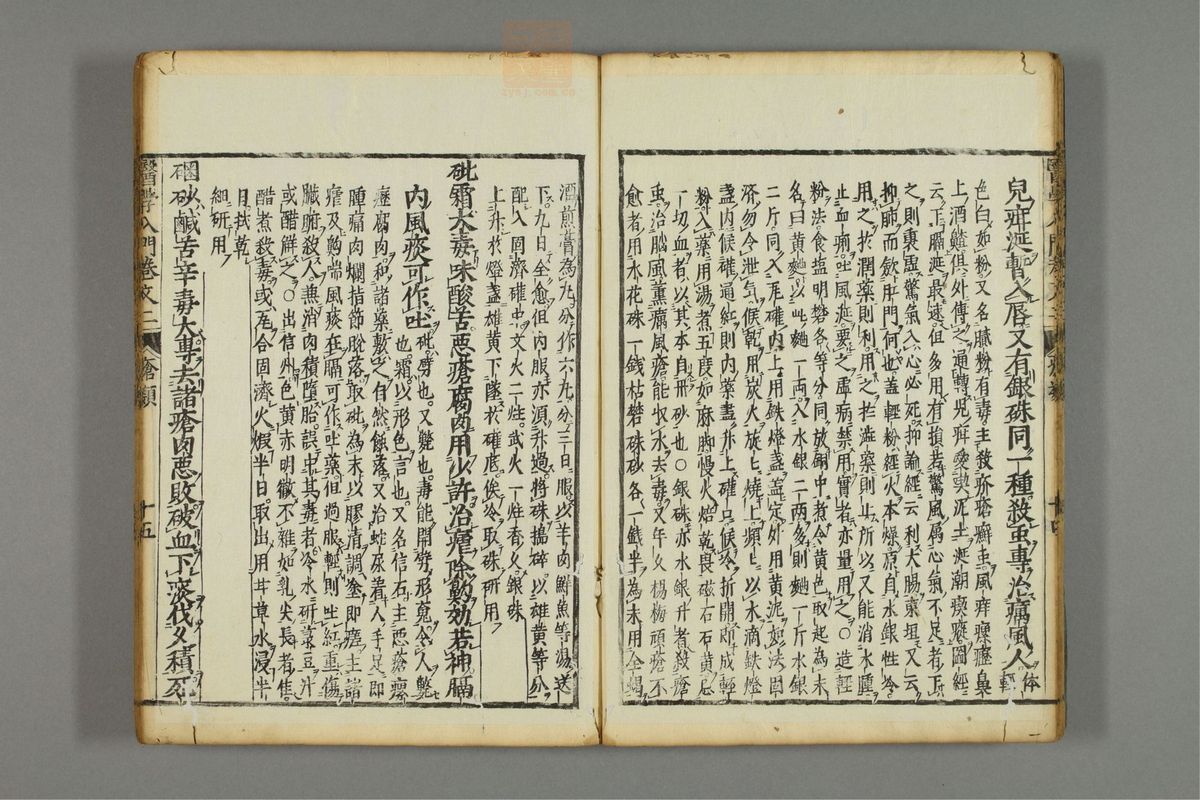 兒疳涎暫入唇又有銀硃同一種殺虫專治癘風人体輕
色白如粉又名膩粉有毒主殺疥瘡癬虫風痒瘰癧鼻
上酒齄俱外傅之通轉兒疳瘈瘲泥上涎潮癭癧圖經
云下膈涎最速但多用有損若驚風属心氣不足者下
之則裏虛驚氣入心必死抑論經云利大腸東垣又云
抑肺而斂肛門何也盖輕粉經火本燥原自水銀性冷
用之於潤藥則利用之於澁藥則止所以又能消水腫
止血痢吐風涎要之虛病禁用實者亦量用之○造輕
粉法食塩明礬各等分同放鍋中煮令黄色取起為末
名曰黄麯以此麯一两入水銀二两多則麯一斤水銀
二斤同入瓦確內上用鉄燈盞盖定外用黄泥如法固
済勿令泄气候乾用炭火旋七燒上頻上以水滴鉄燈
盞內候確通紅則內藥盡升上確口候冷折開即成輕
粉入藥用湯煮五度如麻脚慢火焙乾畏磁石石黄忌
一切血者以其本自丹砂也○銀硃亦水銀升者殺瘡
虫治腦風薰癘風瘡能収水去毒又年久楊梅頑瘡不
愈者用水花硃一錢枯礬硃砂各一錢半為末用全蝎
酒煎膏為丸分作六丸分三日服以羊肉鮮魚等湯送
下九日全愈但內服亦須升過將硃搗碎以雄黄等分
配入固濟確中文火二炷武火一炷香久銀硃
上升於燈盞雄黄下墜於確底俟冷取硃研用
砒霜大毒味酸苦惡瘡腐肉用少許治瘧除齁効若神膈
內風痰可作吐
砒劈也又斃也毒能開劈形竟令人斃
也霜以形色言也又名信石主惡瘡瘰
癧腐肉和諸藥敷之自然蝕落又治蛇尿着人手足即
腫痛肉爛指節脫落取砒為末以膠清調塗即瘥主諸
瘧及齁喘風痰在膈可作吐藥但過服輕則吐紅重傷
臟腑殺人兼消肉積墮胎誤中其毒者冷水研菉豆汁
或醋觧之○出信州色黄赤明徹不雜如乳尖長者佳
醋煮殺毒或瓦合固濟火煆半日取出用甘草水浸半
日拭乾
細研用
硇砂鹹苦辛毒大專去諸瘡肉惡敗破血下痰伐久積死
醫學入門卷文二
瘡類
十五